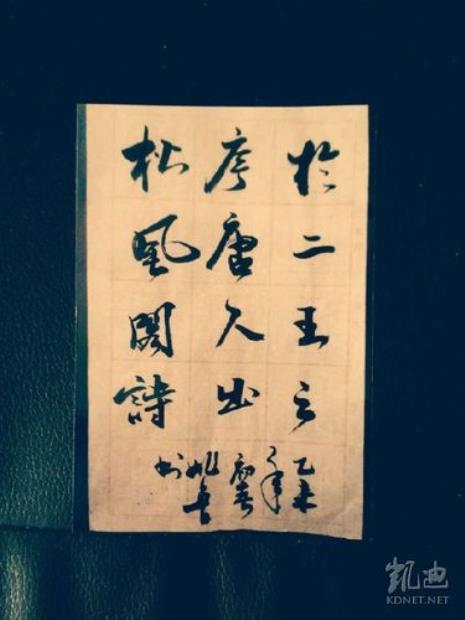 於二王之
序唐人出
松風閣詩
乙未
年
初春
书
凯迪
KDNET.NET